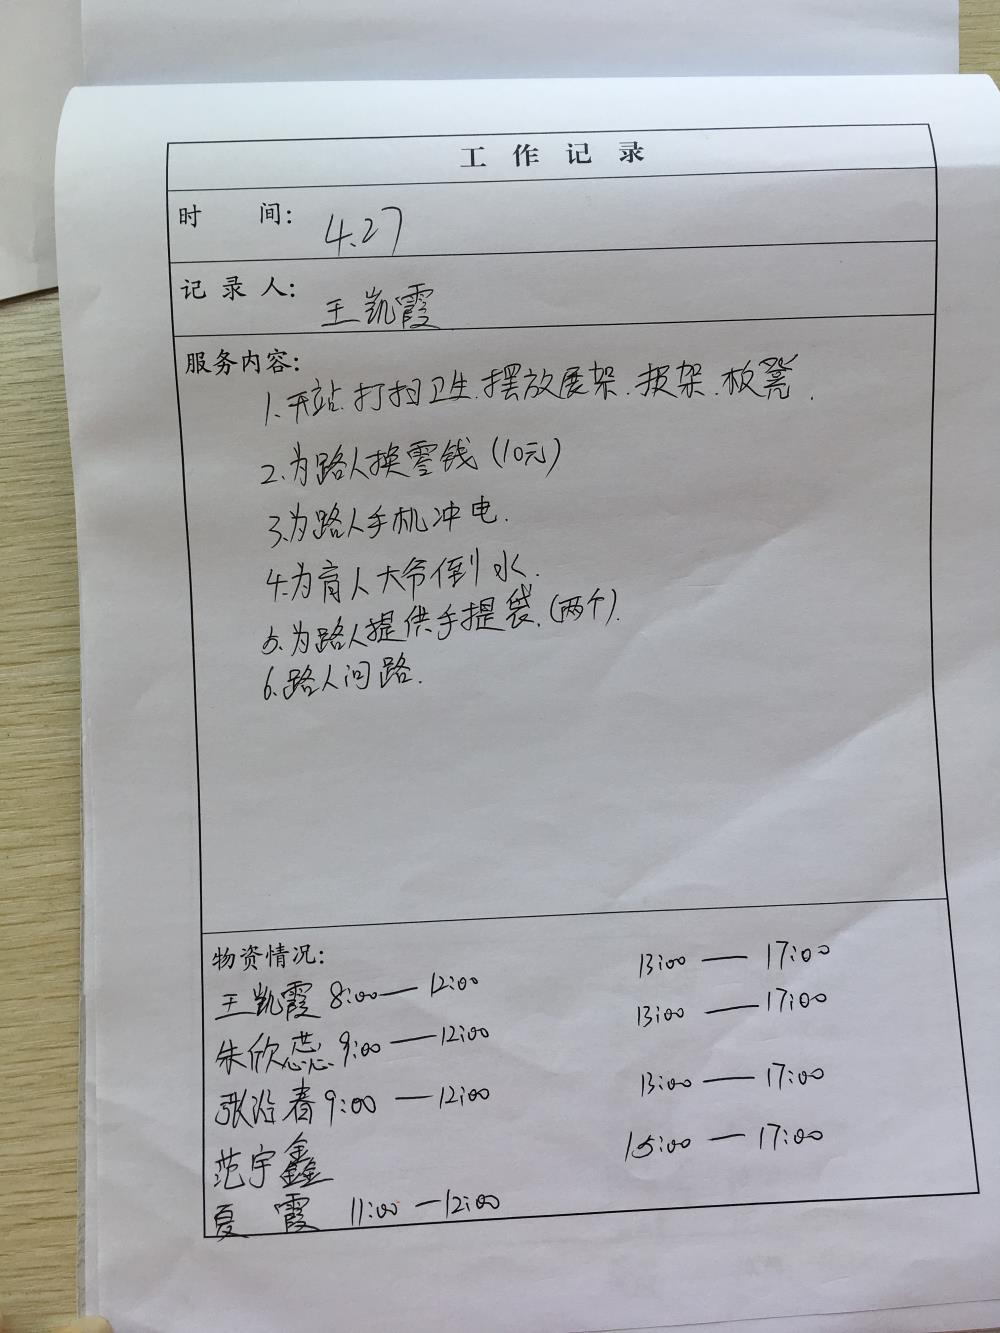 工作记录
时 间： 4.27
记录人： 王凯霞
服务内容：
1.开站.打扫卫生.摆放展架.报架.板凳.
2.为路人换零钱(10元)
3.为路人手机冲电.
4.为盲人大爷倒水.
5.为路人提供手提袋.(两个).
6.路人问路.
物资情况：
王凯霞 8:00—12:00 13:00—17:00
朱欣蕊 9:00—12:00 13:00—17:00
张沿春 9:00—12:00 13:00—17:00
范宇鑫 15:00—17:00
夏霞 11:00—12:00